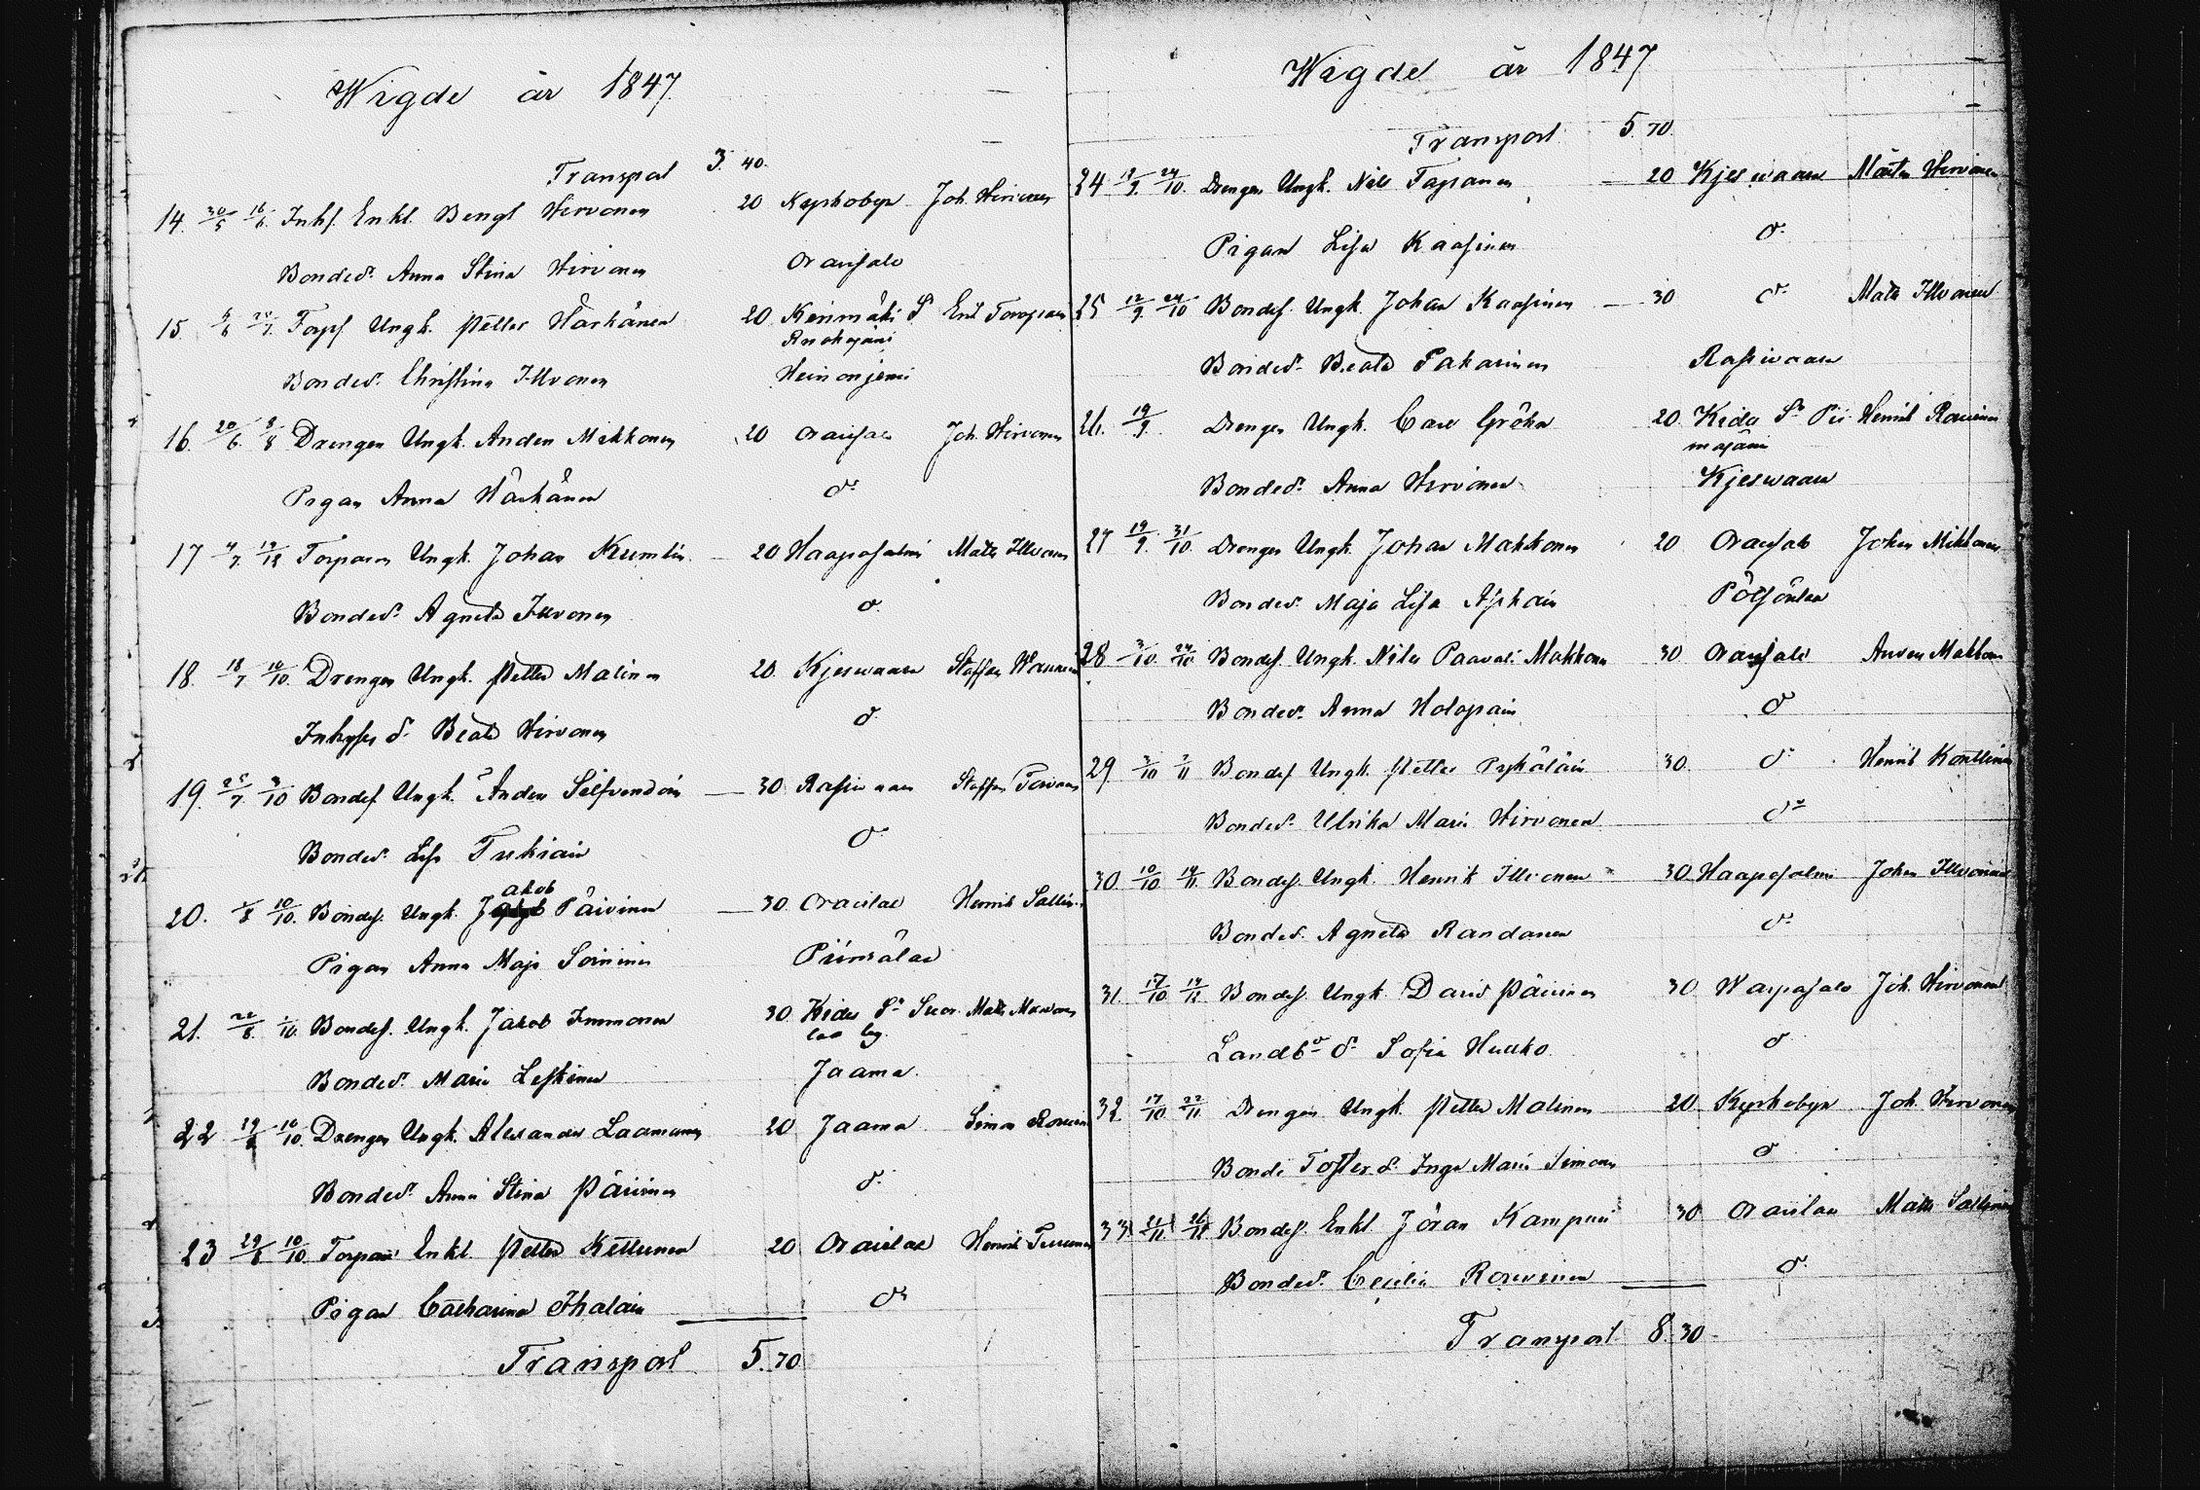 Wigde år 1847
Transport 3. 40.
14. 30/5 16/6 Inhs. Enkl. Bengt Hirvonen 20 Kyrkobyn Joh. Hirvonen
Bonded. Anna Stina Hirvonen Oravisalo
15. 6/6 Torps Ungk. Petter Härkönen 20 Kerimäki Er. Toropain
Ruokojärvi
Bonded. Christina Illvonen Heinoniemi
16. 20/6 8/8 Drengen Ungk. Anders Mikkonen 20 Oravisalo Joh. Hirvonen
Pigan Anna Härkönen do
17 4/7 Torparen Ungk. Johan Kumlin 20 Haapasalmi Matts Illvonen
Bonded. Agneta Illvonen do
18. 18/7 10/10. Drengen Ungk. Petter Malinen 20 Kjeswaara Staffan
Inhyses d. Beata Hirvonen do
19. 25/7 3/10 Bondes. Ungk. Anders Silfvendoin 30 Rasiwaara Staffan
Bonded. Lisa Turkiain do
20. 1/8 10/10. Bondes. Ungk. Jakob Päivinen 30 Oravilax Henrik Sallinen
Pigan Anna Maja Soininen
21. 22/8 Bondes. Ungk. Jakob Immonen 30 Kides Sn Matts
Bonded. Maria Leskinen Jaama
22 10/10. Drengen Ungk. Alexander Laamanen 20 Jaama Simon
Bonded. Anna Stina Päivinen do
23 29/8 10/10 Torpare Enkl. Petter Kettunen 20 Oravilax Henrik
Pigan Catharina Ihalain do
Transport 5. 70
Wigde år 1847
Transport 5. 70.
24 19/9. 24/10. Drengen Ungk. Nils Tapanen 20 Kjeswaara Mårten Hirvonen
Pigan Lisa Kaasinen do
25 12/9. 24/10 Bondes. Ungk. Johan Kaasinen 30 do Matts Illvonen
Bonded. Beata Pakarinen Rasiwaara
26. 19/9. Drengen Ungk. Carl Gröhn 20. Kides Sn Henrik
Bonded. Anna Hirvonen Kjeswaara
27 19/9. 31/10. Drengen Ungk. Johan Makkonen 20 Oravisalo Johan Mikkonen
Bonded. Maja Lisa Asikain Pötsönlax
28 3/10. 24/10 Bondes. Ungk. Nils Paavali Makkonen 30 Oravisalo Anders Makkonen
Bonded. Anna Holopain do
29 3/10 7/11 Bondes. Ungk. Petter Pyhäläin 30. do Henrik Konttinen
Bonded. Ulrika Maria Hirvonen do
30. 10/10 14/11 Bondes. Ungk. Henrik Illvonen 30 Haapasalmi Johan Illvonen
Bonded. Agneta Randanen do
31. 17/10 Bondes. Ungk. David Päivinen 30 Warpasalo Joh. Hirvonen
Landbo d. Sofia Huikko do
32 17/10 Drengen Ungk. Petter Malinen 20 Kyrkobyn Joh. Hirvonen
Bonde Foster d. Inga Maria Simonen do
33 Bondes. Enkl. Jöran Kampuri 30 Oravilax Matts Sallinen
Bonded. Cecilia Rouvinen do
Transport 8. 30